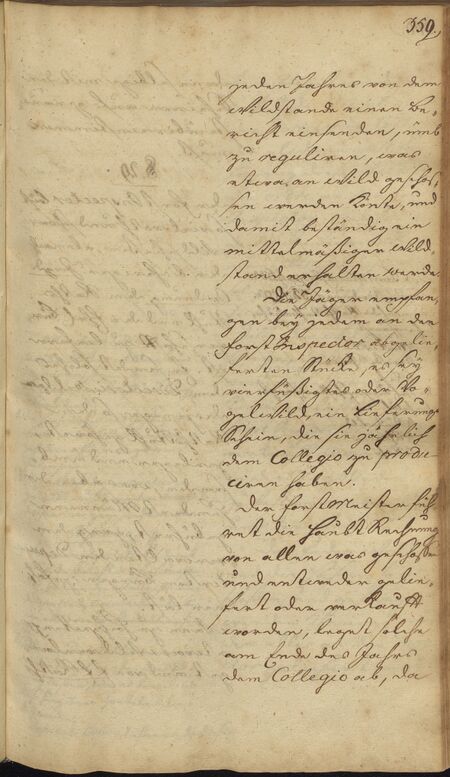 359.
jeden Jahres von dem
Wildstande einen Be-
richt einsenden, umb
zu reguliren, was
etwa an Wild geschos-
sen werden könte, und
damit beständig ein
mittelmäßiger Wild-
stand erhalten werde.
Die Jäger empfan-
gen bey jedem an den
Forst Inspector abgelie-
ferten Stücke, es sey
vierfüßigtes oder Vo-
gel Wild, ein Lieferungs
Schein, die sie jährlich
dem Collegio zu produ-
ciren haben.
Der Forst Meister füh-
ret die Haubt Rechnung
von allen was geschossen
und entweder gelie-
fert oder verkaufft
worden, leget solche
am Ende des Jahrs
dem Collegio ab, da